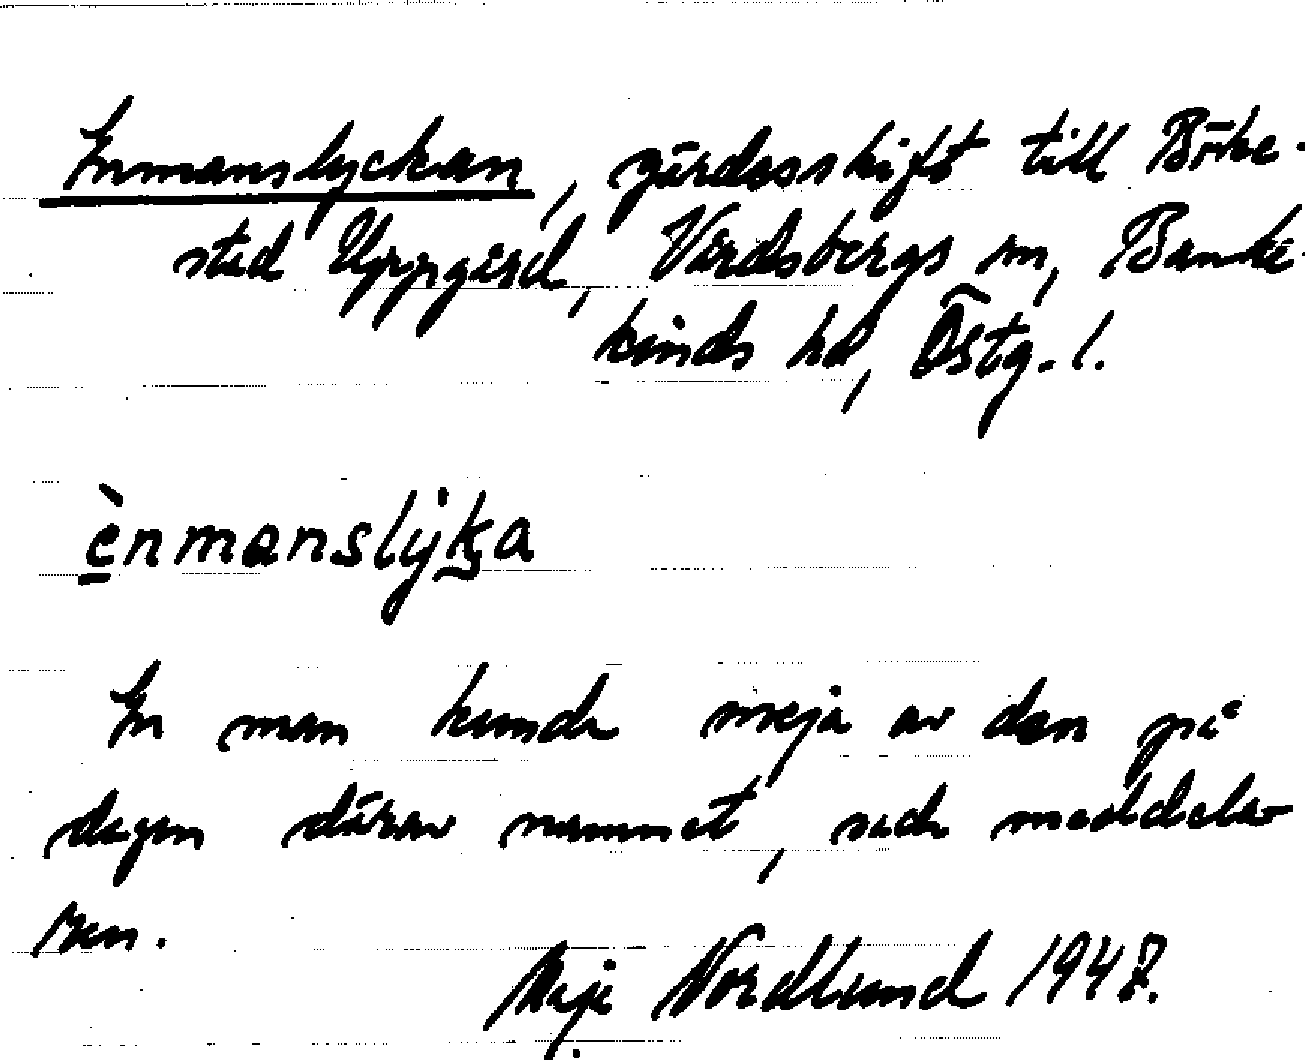 Enmanslyckan, gärdesskift till Böke-
stad Uppgård, Vårdsbergs sn, Banke-
kinds hd, Östg. l.
ènmanslyka
En man kunde meja av den på
dagen därav namnet, sade meddela-
ren.
Maja Nordlund 1948.